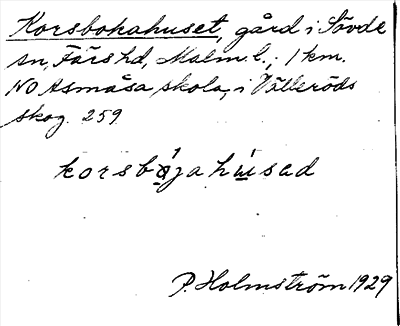 Korsbokahuset, gård i Sövde
sn, Färs hd, Malm. l., 1 km.
NO Asmåsa skola, i Välleröds
skog. 259
korsbø̀jahúsad
P. Holmström 1929